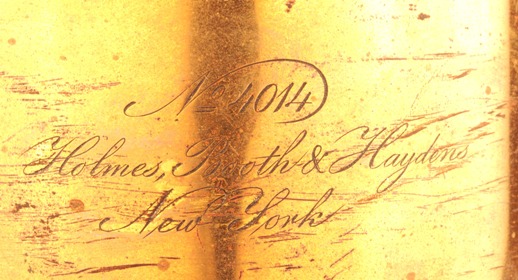 No 4014
Holmes, Booth & Haydens
New York